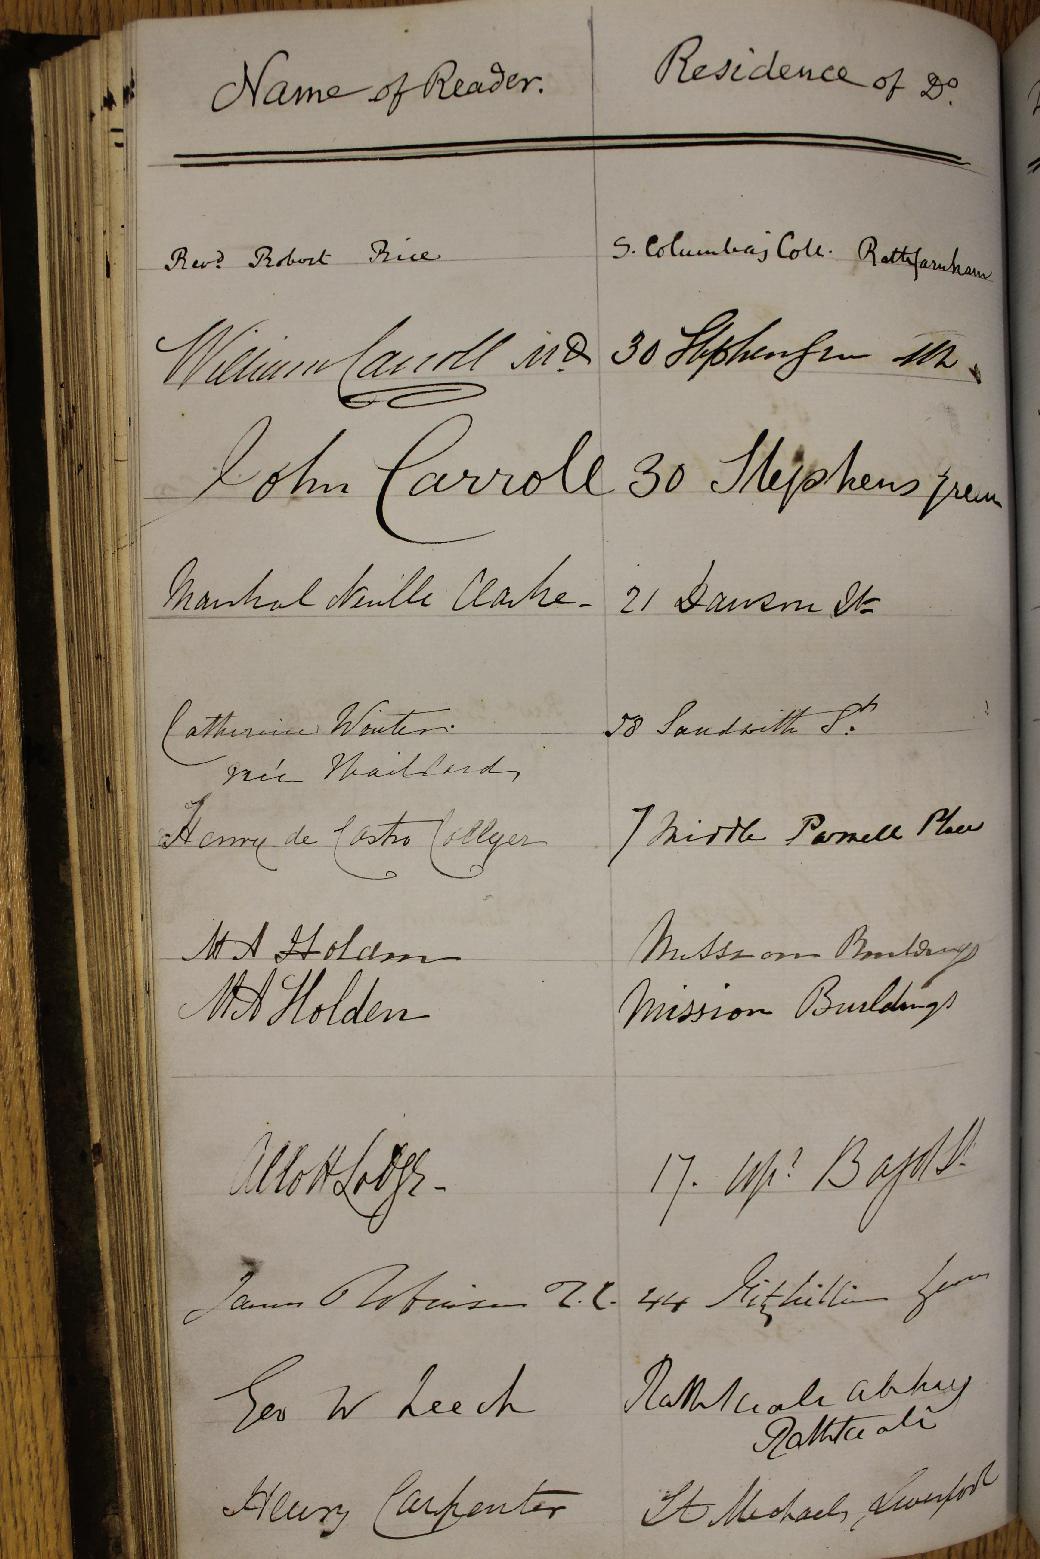 Name of Reader. Residence of Do.
Revd. Robert Rice S. Columba's Coll. Rathfarnham
William Carroll M.D. 30 Stephens Green
John Carroll 30 Stephens green
Marshal Neville Clarke - 21 Dawson St
Catherine 58 Sandwith St.
née
Henry de Castro Collyer 7 Middle Place
M A Holden Mission Buildings
M A Holden Mission Buildings
Lodge - 17. Upr. St.
James Robinson T.C. 44 Fitzwilliam
Geo W Leech Rathkeale abbey
Rathkeale
Henry Carpenter St Michaels, Liverpool